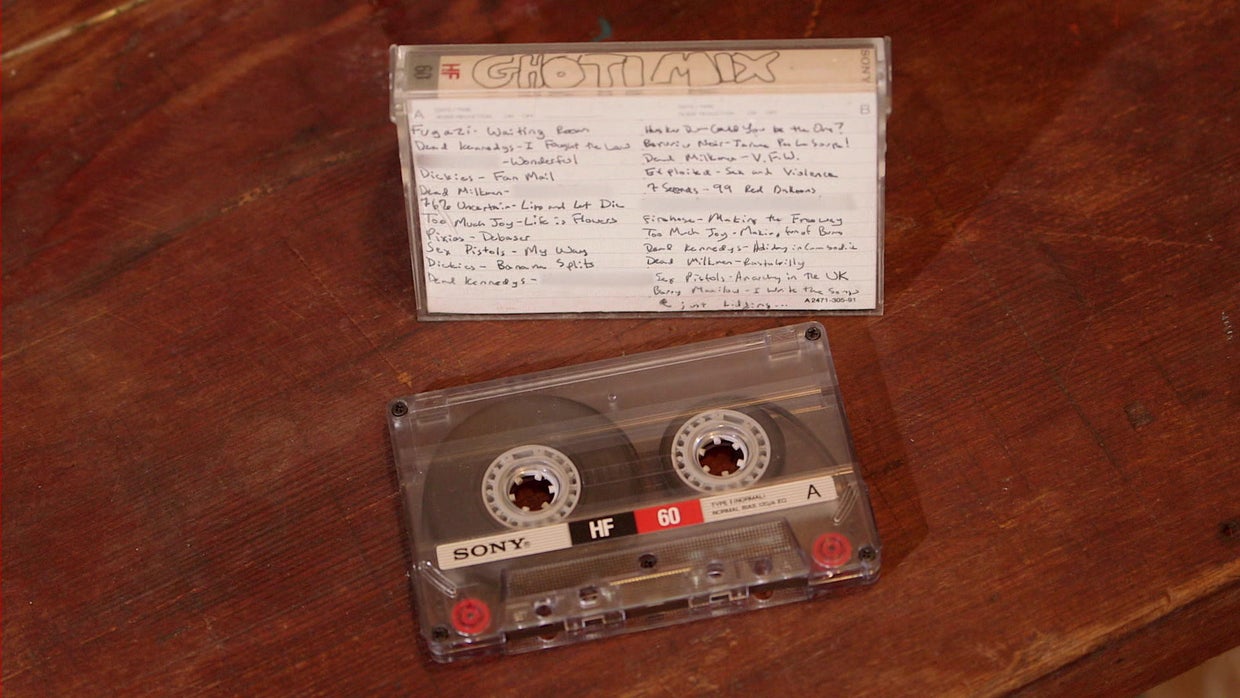 60 HF GHOTI MIX SONY
A
B
Fugazi - Waiting Room
Dead Kennedys - I Fought the Law
- Wonderful
Dickies - Fan Mail
Dead Milkmen -
76% Uncertain - Lips and Let Die
Too Much Joy - Life is Flowers
Pixies - Debaser
Sex Pistols - My Way
Dickies - Banana Splits
Dead Kennedys -
Husker Du - Could You be the One?
Dead Milkmen - V.F.W.
Exploited - Sex and Violence
7 Seconds - 99 Red Balloons
Firehose - Making the Freeway
Too Much Joy - Making fun of Bums
Dead Kennedys - Holiday in Cambodia
Dead Milkmen - Rastabilly
Sex Pistols - Anarchy in the UK
Barry Manilow - I Write the Songs
just kidding...
A 2471-305-91
SONY HF 60 A
TYPE I (NORMAL)
NORMAL BIAS 120μs EQ